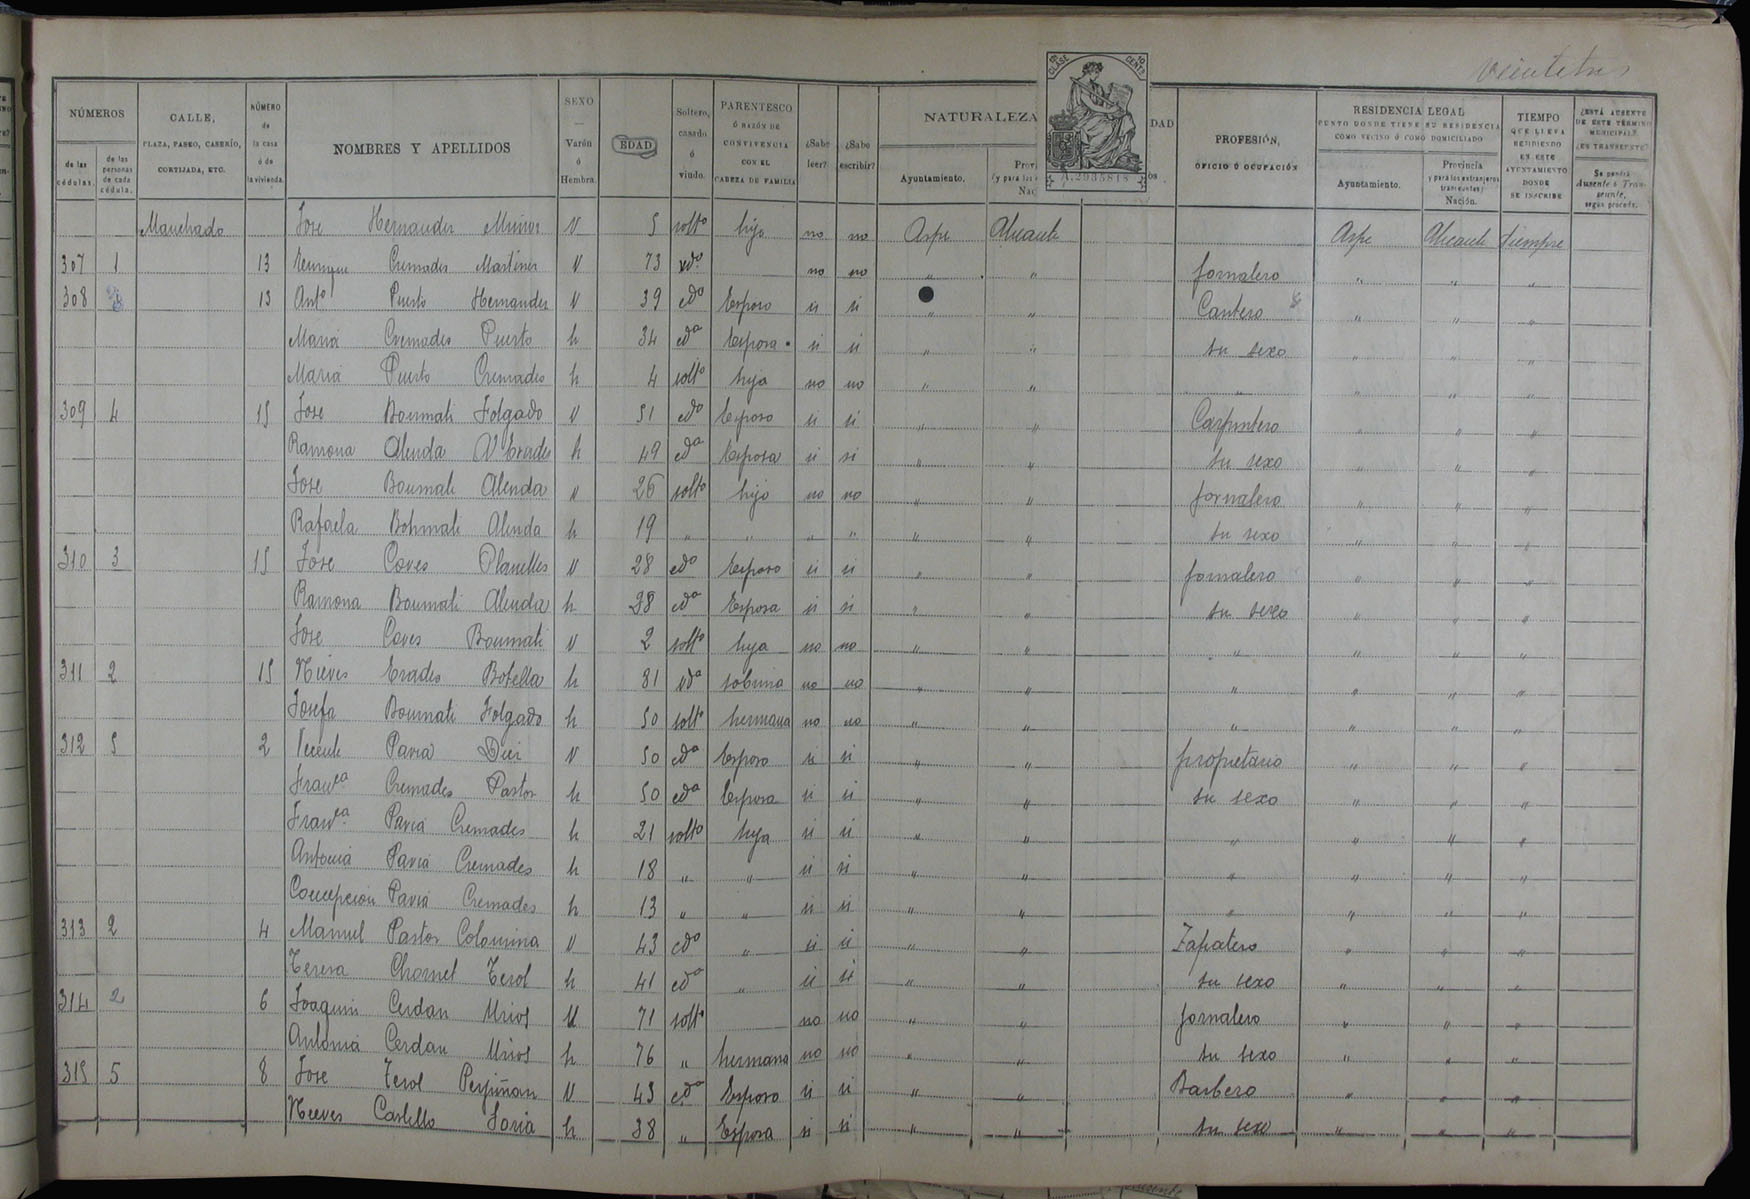 veintitres
NÚMEROS
de las cédulas.
de las personas de cada cédula.
CALLE, PLAZA, PASEO, CASERÍO, CORTIJADA, ETC.
NÚMERO de la casa ó de la vivienda.
NOMBRES Y APELLIDOS
SEXO — Varón ó Hembra.
EDAD
Soltero, casado ó viudo.
PARENTESCO Ó RAZÓN DE CONVIVENCIA CON EL CABEZA DE FAMILIA
¿Sabe leer?
¿Sabe escribir?
NATURALEZA
Ayuntamiento.
10 CENTS
A.2935818
DAD
PROFESIÓN, OFICIO Ó OCUPACIÓN
RESIDENCIA LEGAL
PUNTO DONDE TIENE SU RESIDENCIA COMO VECINO Ó COMO DOMICILIADO
Ayuntamiento.
Provincia (y para los extranjeros transeuntes) Nación.
TIEMPO QUE LLEVA RESIDIENDO EN ESTE AYUNTAMIENTO DONDE SE INSCRIBE
¿ESTÁ AUSENTE DE ESTE TÉRMINO MUNICIPAL? ¿ES TRANSEUNTE?
Se pondrá Ausente ó Transeunte, según proceda.
Manchado Jose Hernandez Muñoz V 5 solto hijo no no Aspe Alicante Aspe Alicante Siempre
307 1 13 Enrique Cremades Martinez V 73 vdo no no " " jornalero " " "
308 13 Anto Puerto Hernandez V 39 cdo Esposo si si " " Cantero " " "
Maria Cremades Puerto h 34 cda Esposa si si " " su sexo " " "
Maria Puerto Cremades h 4 solto hija no no " " " " " "
309 4 15 Jose Boumati Folgado V 51 cdo Esposo si si " " Carpintero " " "
Ramona Alenda h 49 cda Esposa si si " " su sexo " " "
Jose Boumati Alenda V 26 solto hijo no no " " jornalero " " "
Rafaela Bohmati Alenda h 19 " " " " " " su sexo " " "
310 3 15 Jose Caves Planelles V 28 cdo Esposo si si " " jornalero " " "
Ramona Boumati Alenda h 28 cda Esposa si si " " su sexo " " "
Jose Caves Boumati V 2 solto hijo no no " " " " " "
311 2 15 Nieves Erades Botella h 81 vda sobrina no no " " " " " "
Josefa Boumati Folgado h 50 solto hermana no no " " " " " "
312 5 2 Vicente Pavia V 50 cda Esposo si si " " propietario " " "
Franca Cremades Pastor h 50 cda Esposa si si " " su sexo " " "
Franca Pavia Cremades h 21 solto hija si si " " " " " "
Antonia Pavia Cremades h 18 " " si si " " " " " "
Concepcion Pavia Cremades h 13 " " si si " " " " " "
313 2 4 Manuel Pastor Colomina V 43 cdo " si si " " Zapatero " " "
Teresa Chornet Terol h 41 cda " si si " " su sexo " " "
314 2 6 Joaquin Cerdan Urios V 71 solto no no " " jornalero " " "
Antonia Cerdan Urios h 76 " hermana no no " " su sexo " " "
315 5 8 Jose Terol Perpiñan V 43 cda Esposo si si " " Barbero " " "
Nieves Castello Soria h 38 " Esposa si si " " su sexo " " "